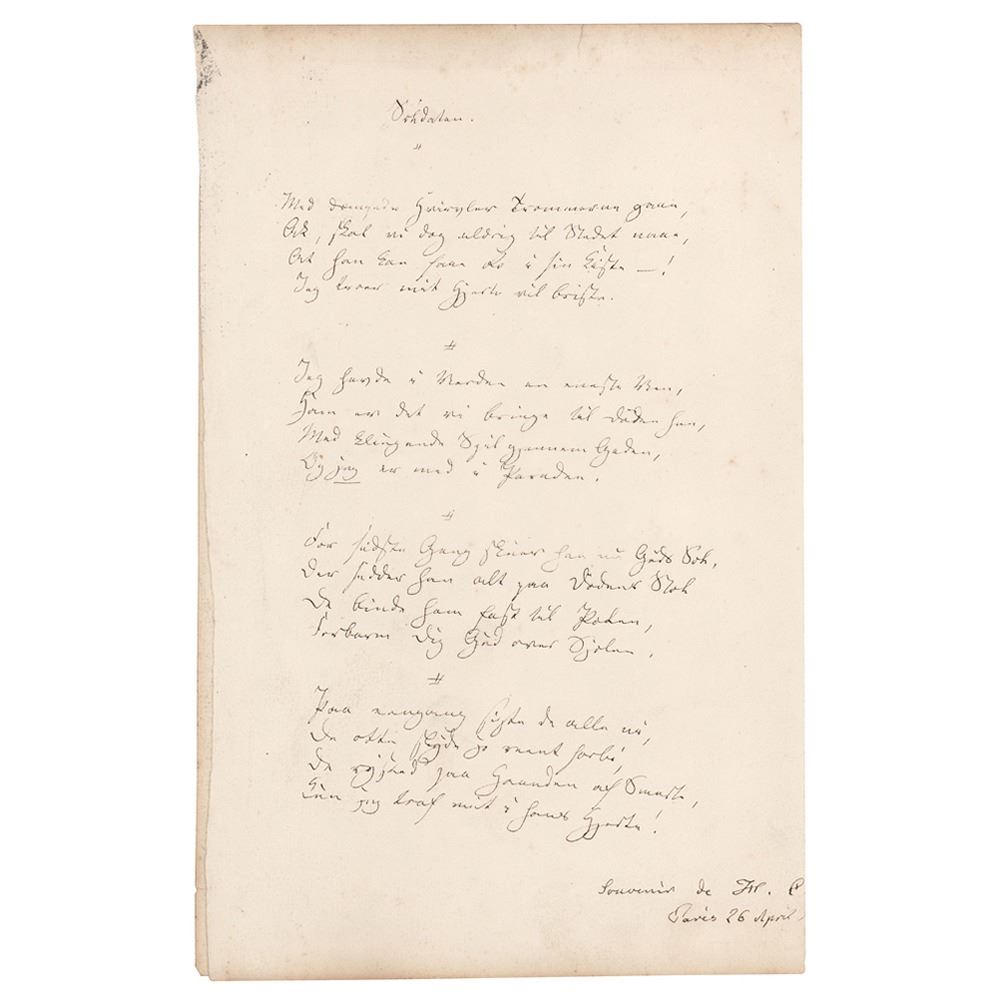 Soldaten.
Med dæmpede Hvirvler Trommerne gaae,
Ak, skal vi dog aldrig til Stedet naae,
At han kan faae Ro i sin Kiste —!
Jeg troer mit Hjerte vil briste.
Jeg havde i Verden en eneste Ven,
Ham er det vi bringe til Døden hen,
Med klingende Spil gjennem Gaden,
Og jeg er med i Paraden.
For sidste Gang skuer han nu Guds Sol,
Der sidder han alt paa Dødens Stol
De binde ham fast til Pælen,
Forbarm Dig Gud over Sjælen.
Paa eengang sigte de alle ni,
De otte skyde jo reent forbi,
De rysted paa Haanden af Smerte,
Kun jeg traf midt i hans Hjerte!
Souvenir de
Paris 26 April